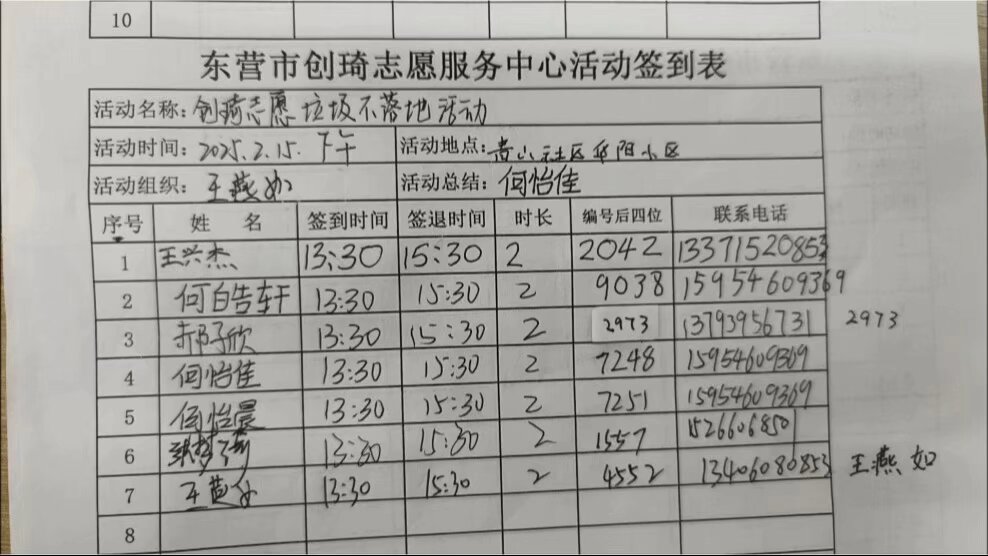 10
东营市创琦志愿服务中心活动签到表
活动名称：创琦志愿 垃圾不落地活动
活动时间：2025.2.15. 下午 活动地点：青山社区华阳小区
活动组织：王燕如 活动总结：何怡佳
序号 姓 名 签到时间 签退时间 时长 编号后四位 联系电话
1 王兴杰 13:30 15:30 2 2042 13371520853
2 何皓轩 13:30 15:30 2 9038 15954609369
3 郝子欣 13:30 15:30 2 2973 13793956731 2973
4 何怡佳 13:30 15:30 2 7248 15954609369
5 何怡晨 13:30 15:30 2 7251 15954609369
6 13:30 15:30 2 1557 1526606850
7 13:30 15:30 2 4552 13406080853 王燕如
8